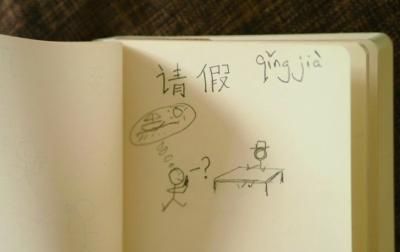 请假 qǐng jià
-?